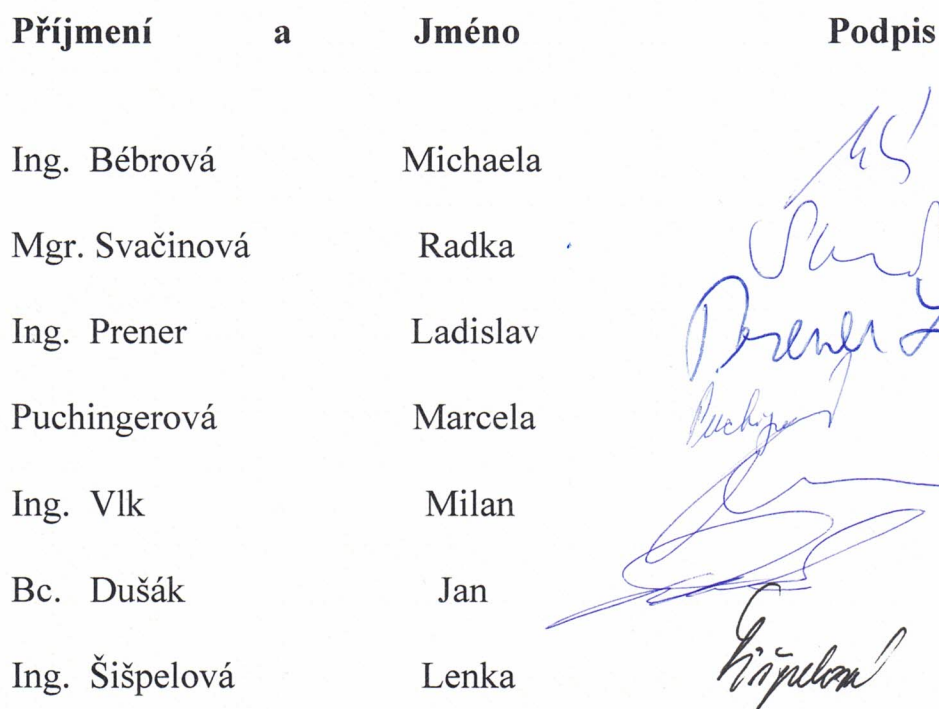 Příjmení a Jméno Podpis
Ing. Bébrová Michaela
Mgr. Svačinová Radka
Ing. Prener Ladislav Prener L
Puchingerová Marcela
Ing. Vlk Milan
Bc. Dušák Jan
Ing. Šišpelová Lenka Šišpelová